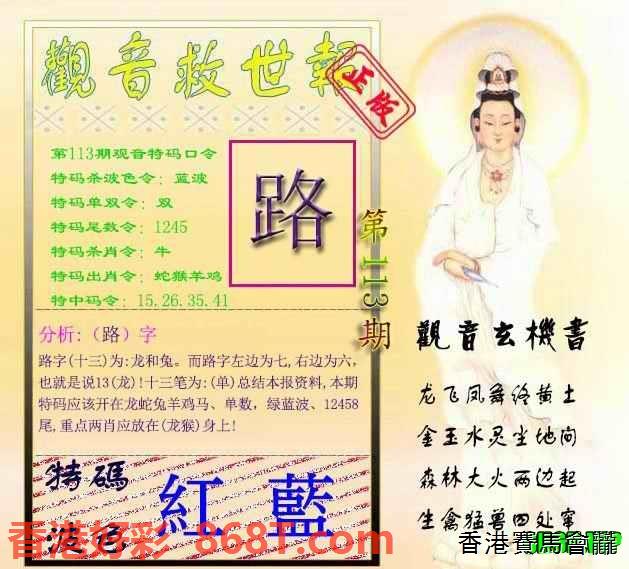 觀音救世報
正版
第113期观音特码口令
特码杀波色令：蓝波
特码单双令：双
特码尾数令：1245
特码杀肖令：牛
特码出肖令：蛇猴羊鸡
特中码令：15.26.35.41
路
第113期
分析：（路）字
路字(十三)为:龙和兔。而路字左边为七,右边为六,
也就是说13(龙)!十三笔为:(单)总结本报资料,本期
特码应该开在龙蛇兔羊鸡马、单数，绿蓝波、12458
尾,重点两肖应放在(龙猴)身上!
特碼
波色
紅 藍
觀音玄機書
龙飞凤舞终黄土
金玉水灵尘地间
森林大火两边起
生禽猛兽四处窜
香港好彩 868T.com
香港賽馬會